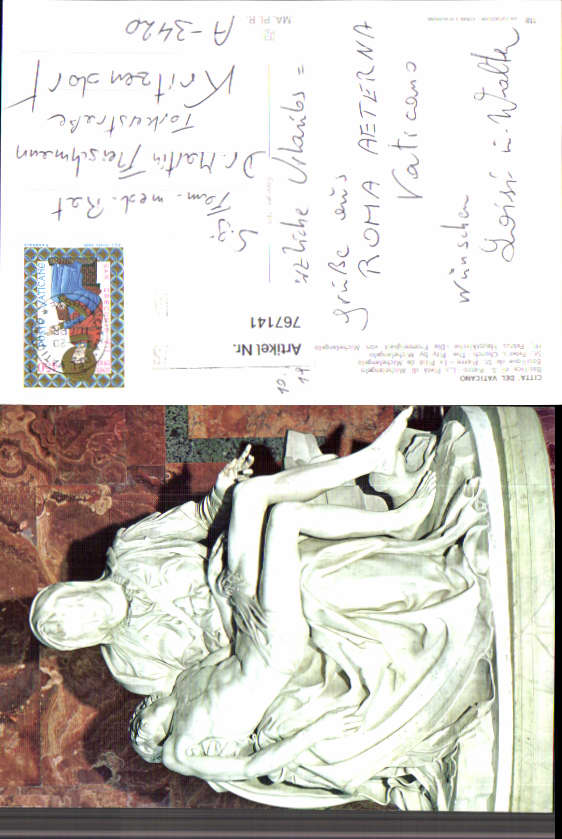 CITTA' DEL VATICANO
Basilica di S. Pietro: La Pietà di Michelangelo
Basilique de St. Pierre - La Pitié de Michelangelo
St. Peter Church: The Pity by Michelangelo
St. Peters Hauptkirche - Die Frömmigkeit von Michelangelo
Artikel Nr.
767141
10.
rzliche Urlaubs =
grüße aus
ROMA AETERNA
Vaticano
wünschen
Loisi u. Walter
Fam. med. Rat
Dr. Martin Fleischmann
Kritzendorf
A-3420
MA. PI. R.
VATICANO